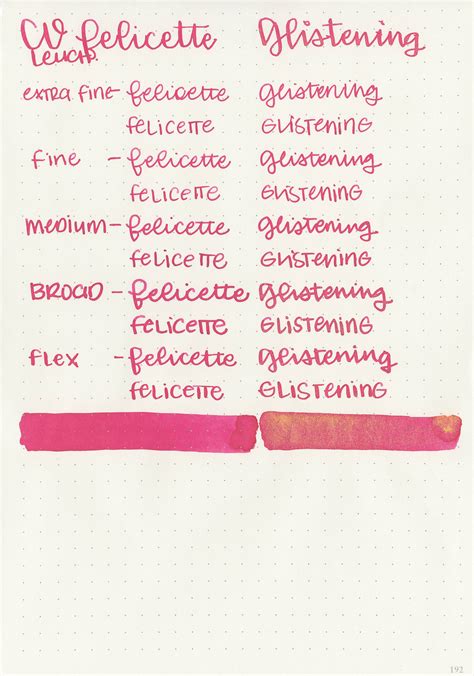 CV felicette Glistening
LEUCH.
extra fine - felicette Glistening
felicette GLISTENING
fine - felicette Glistening
felicette GLISTENING
medium - felicette Glistening
felicette GLISTENING
BROAD - felicette Glistening
felicette GLISTENING
flex - felicette Glistening
felicette GLISTENING
192